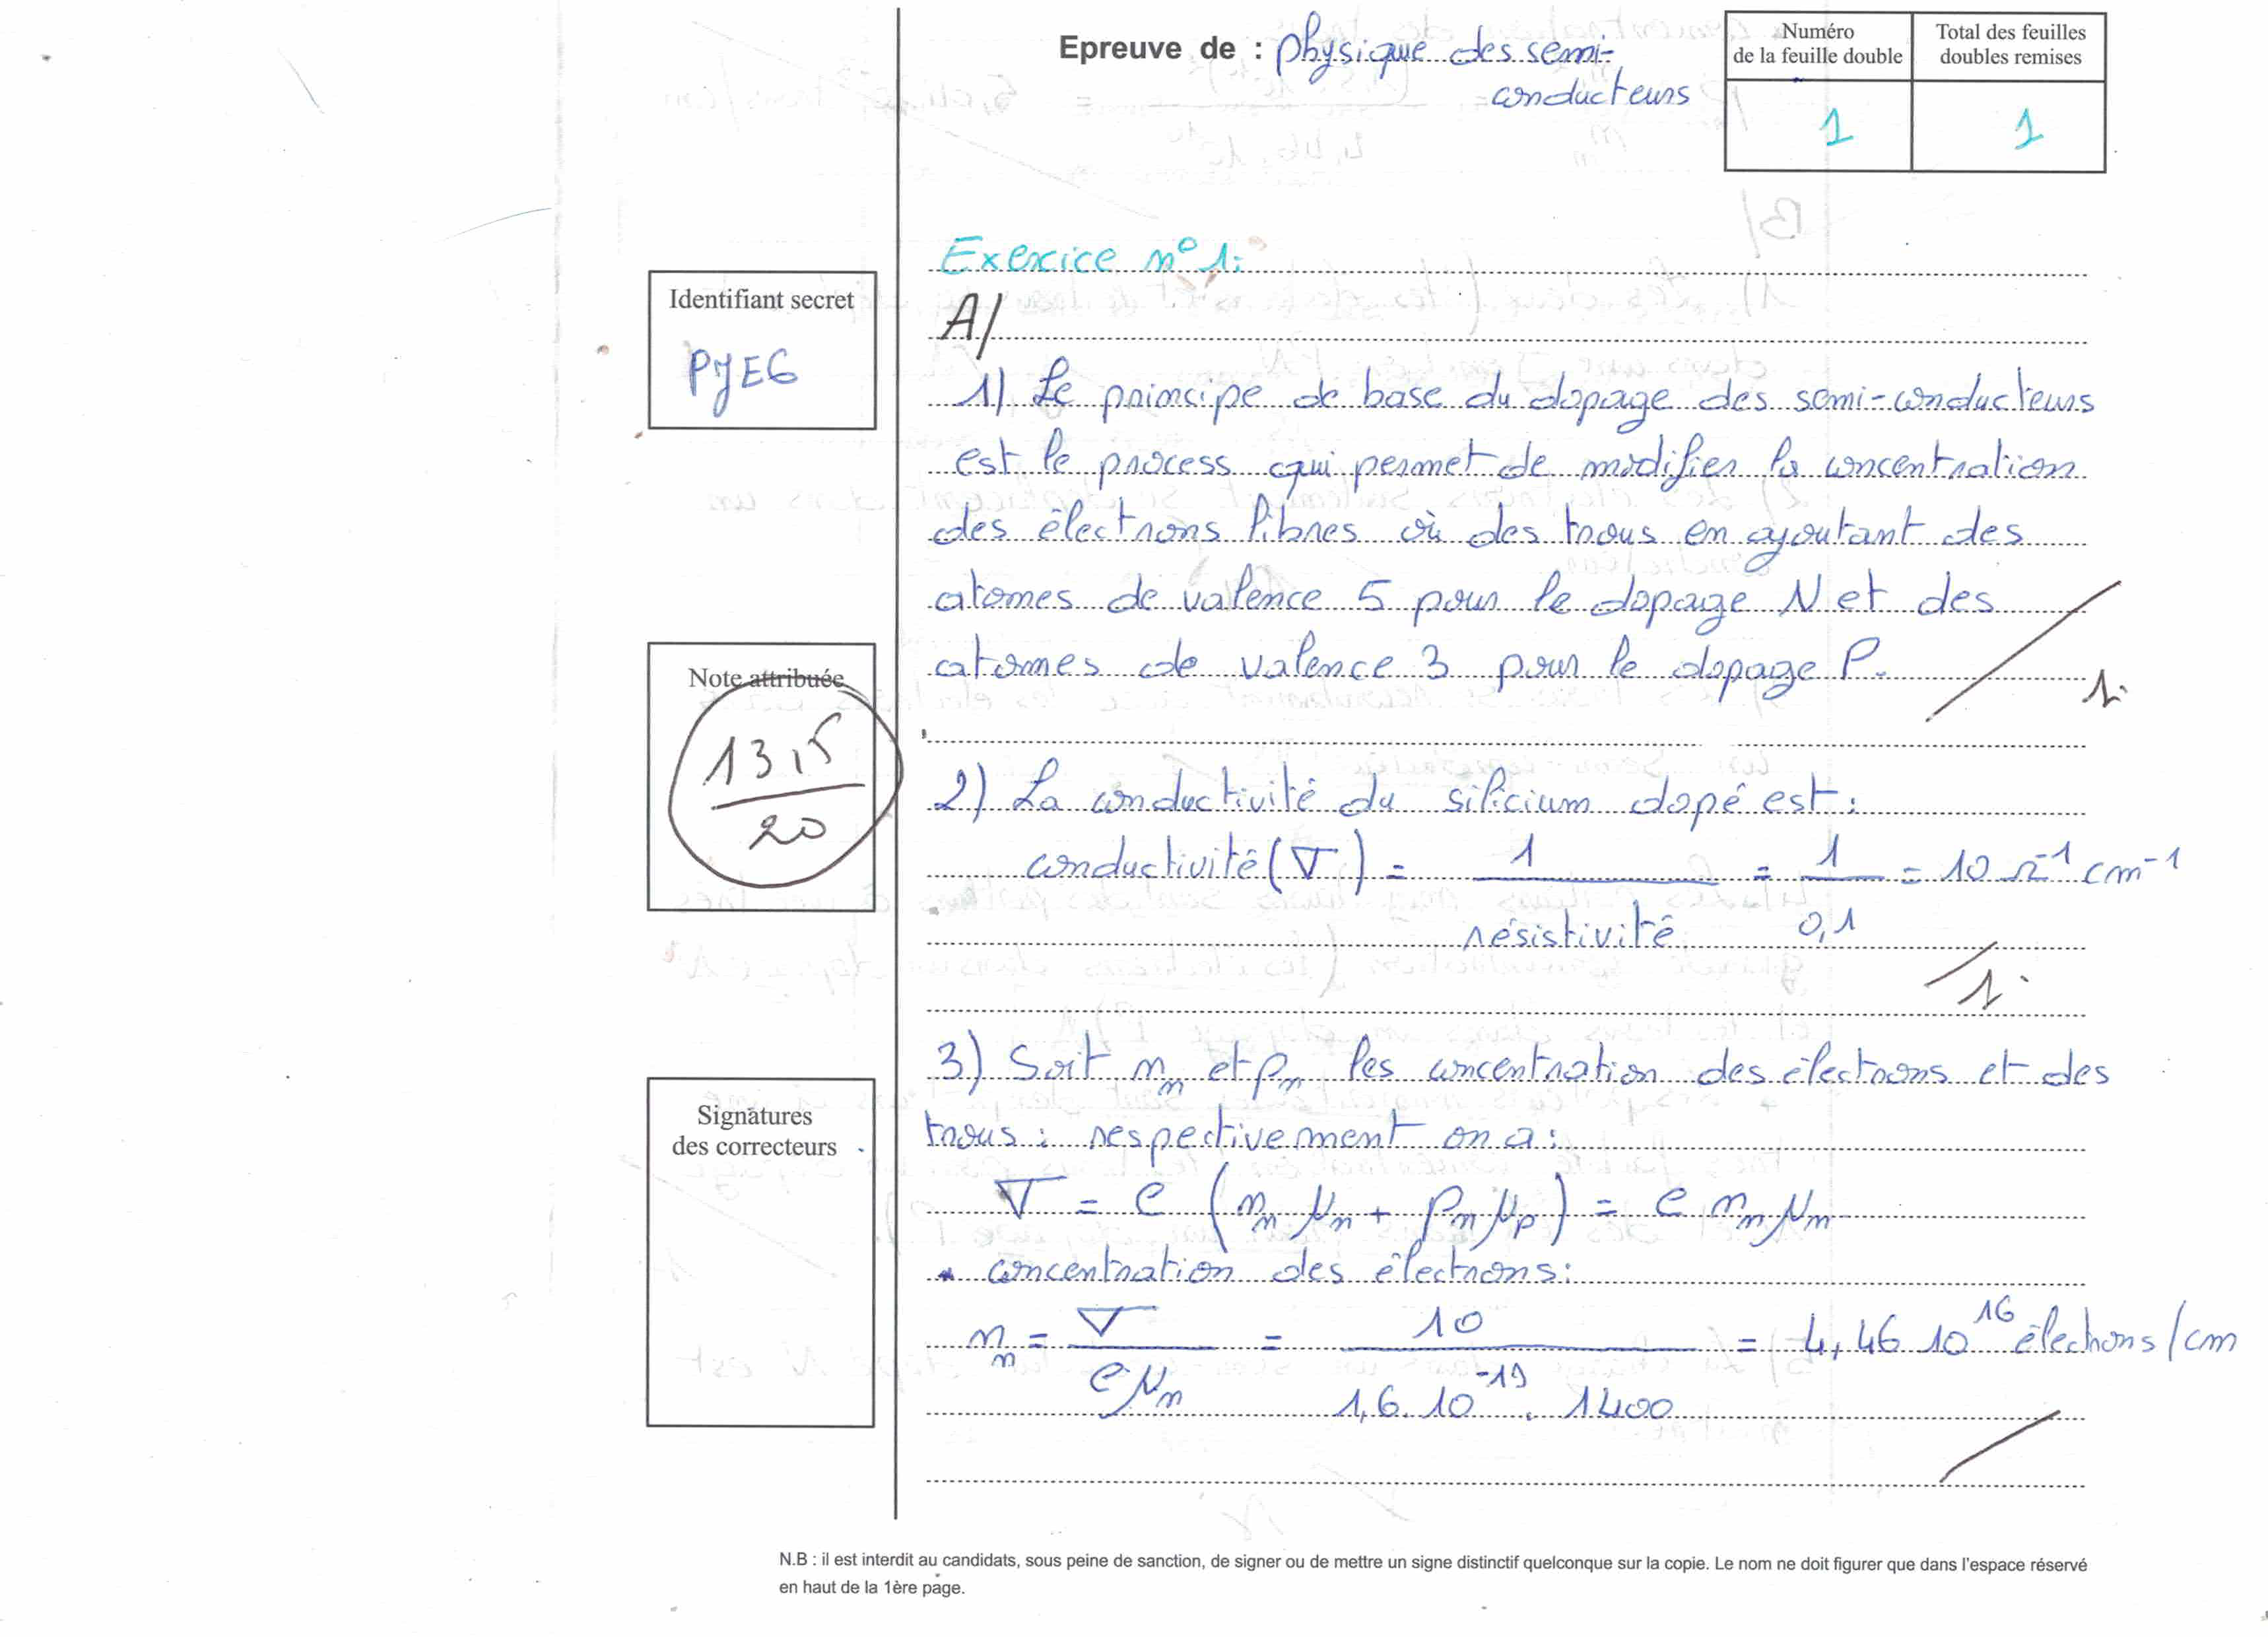 Epreuve de : physique des semi-
conducteurs
Numéro
de la feuille double
Total des feuilles
doubles remises
1
1
Exercice n° 1:
Identifiant secret
PJEG
A/
1) Le principe de base du dopage des semi-conducteurs
est le process qui permet de modifier la concentration
des électrons libres où des trous en ajoutant des
atomes de valence 5 pour le dopage N et des
atomes de valence 3 pour le dopage P.
1
Note attribuée
13,5
20
2) La conductivité du silicium dopé est:
conductivité (σ) = 1/résistivité = 1/0,1 = 10 Ω⁻¹ cm⁻¹
1
3) Soit nₙ et pₙ les concentration des électrons et des
trous : respectivement on a:
σ = e (nₙ μₙ + pₙ μₚ) = e nₙ μₙ
Signatures
des correcteurs
concentration des électrons:
nₙ = σ/(e μₙ) = 10/(1,6. 10⁻¹⁹ . 1400) = 4,46 10¹⁶ électrons/cm
N.B : il est interdit au candidats, sous peine de sanction, de signer ou de mettre un signe distinctif quelconque sur la copie. Le nom ne doit figurer que dans l'espace réservé
en haut de la 1ère page.